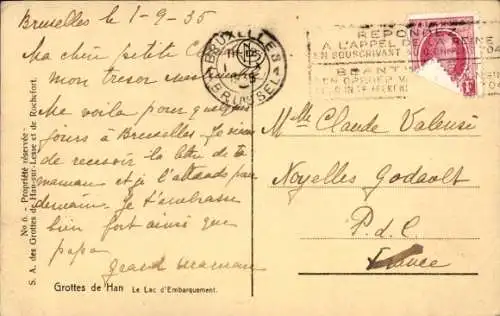 Bruxelles le 1-9-35
Ma chère petite
mon trésor
Me voilà pour quelques
jours à Bruxelles Je viens
de recevoir la lettre de ta
maman et je l'attends pour
demain. Je t'embrasse
bien fort ainsi que
papa
grand maman
Grottes de Han Le Lac d'Embarquement.
No 6. - Propriété réservée -
S. A. des Grottes de Han-sur-Lesse et de Rochefort.
BRUXELLES
BRUSSEL
REPONDEZ
A L'APPEL DE LA REINE
EN SOUSCRIVANT
BEANTW
Melle Claude Valensi
Noyelles Godault
P. d. C.
France